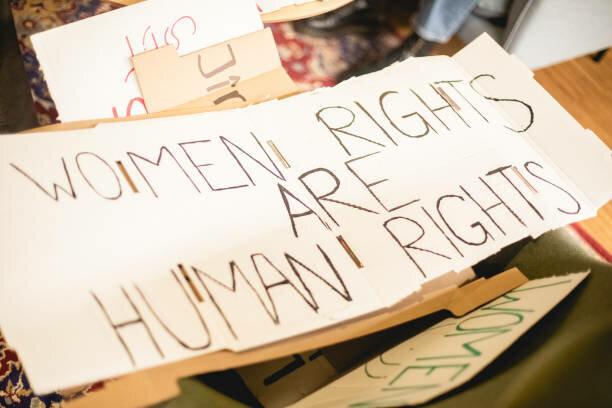 WOMEN RIGHTS
ARE
HUMAN RIGHTS
WOMEN